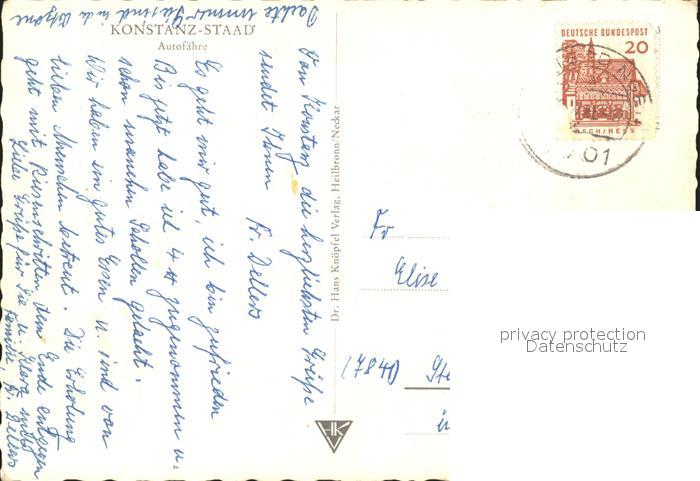 KONSTANZ-STAAD
Autofähre
Von Konstanz die herzlichsten Grüße
sendet Ihnen
Fr. Dellers
Es geht mir gut, ich bin zufrieden
Bis jetzt habe ich 4 ℔ zugenommen u.
schon manchen gelacht.
Wir haben ein gutes Essen u. sind von
lieben Menschen betreut. Die Erholung
geht mit Riesenschritten dem Ende entgegen
Liebe Grüße für Sie u.
Fr. Dellers
Dachte immer in die
Dr. Hans Knöpfel Verlag, Heilbronn/Neckar
HK
V
DEUTSCHE BUNDESPOST
20
RSCH/HESS
01
Fr
Elise
(7840)
privacy protection
Datenschutz